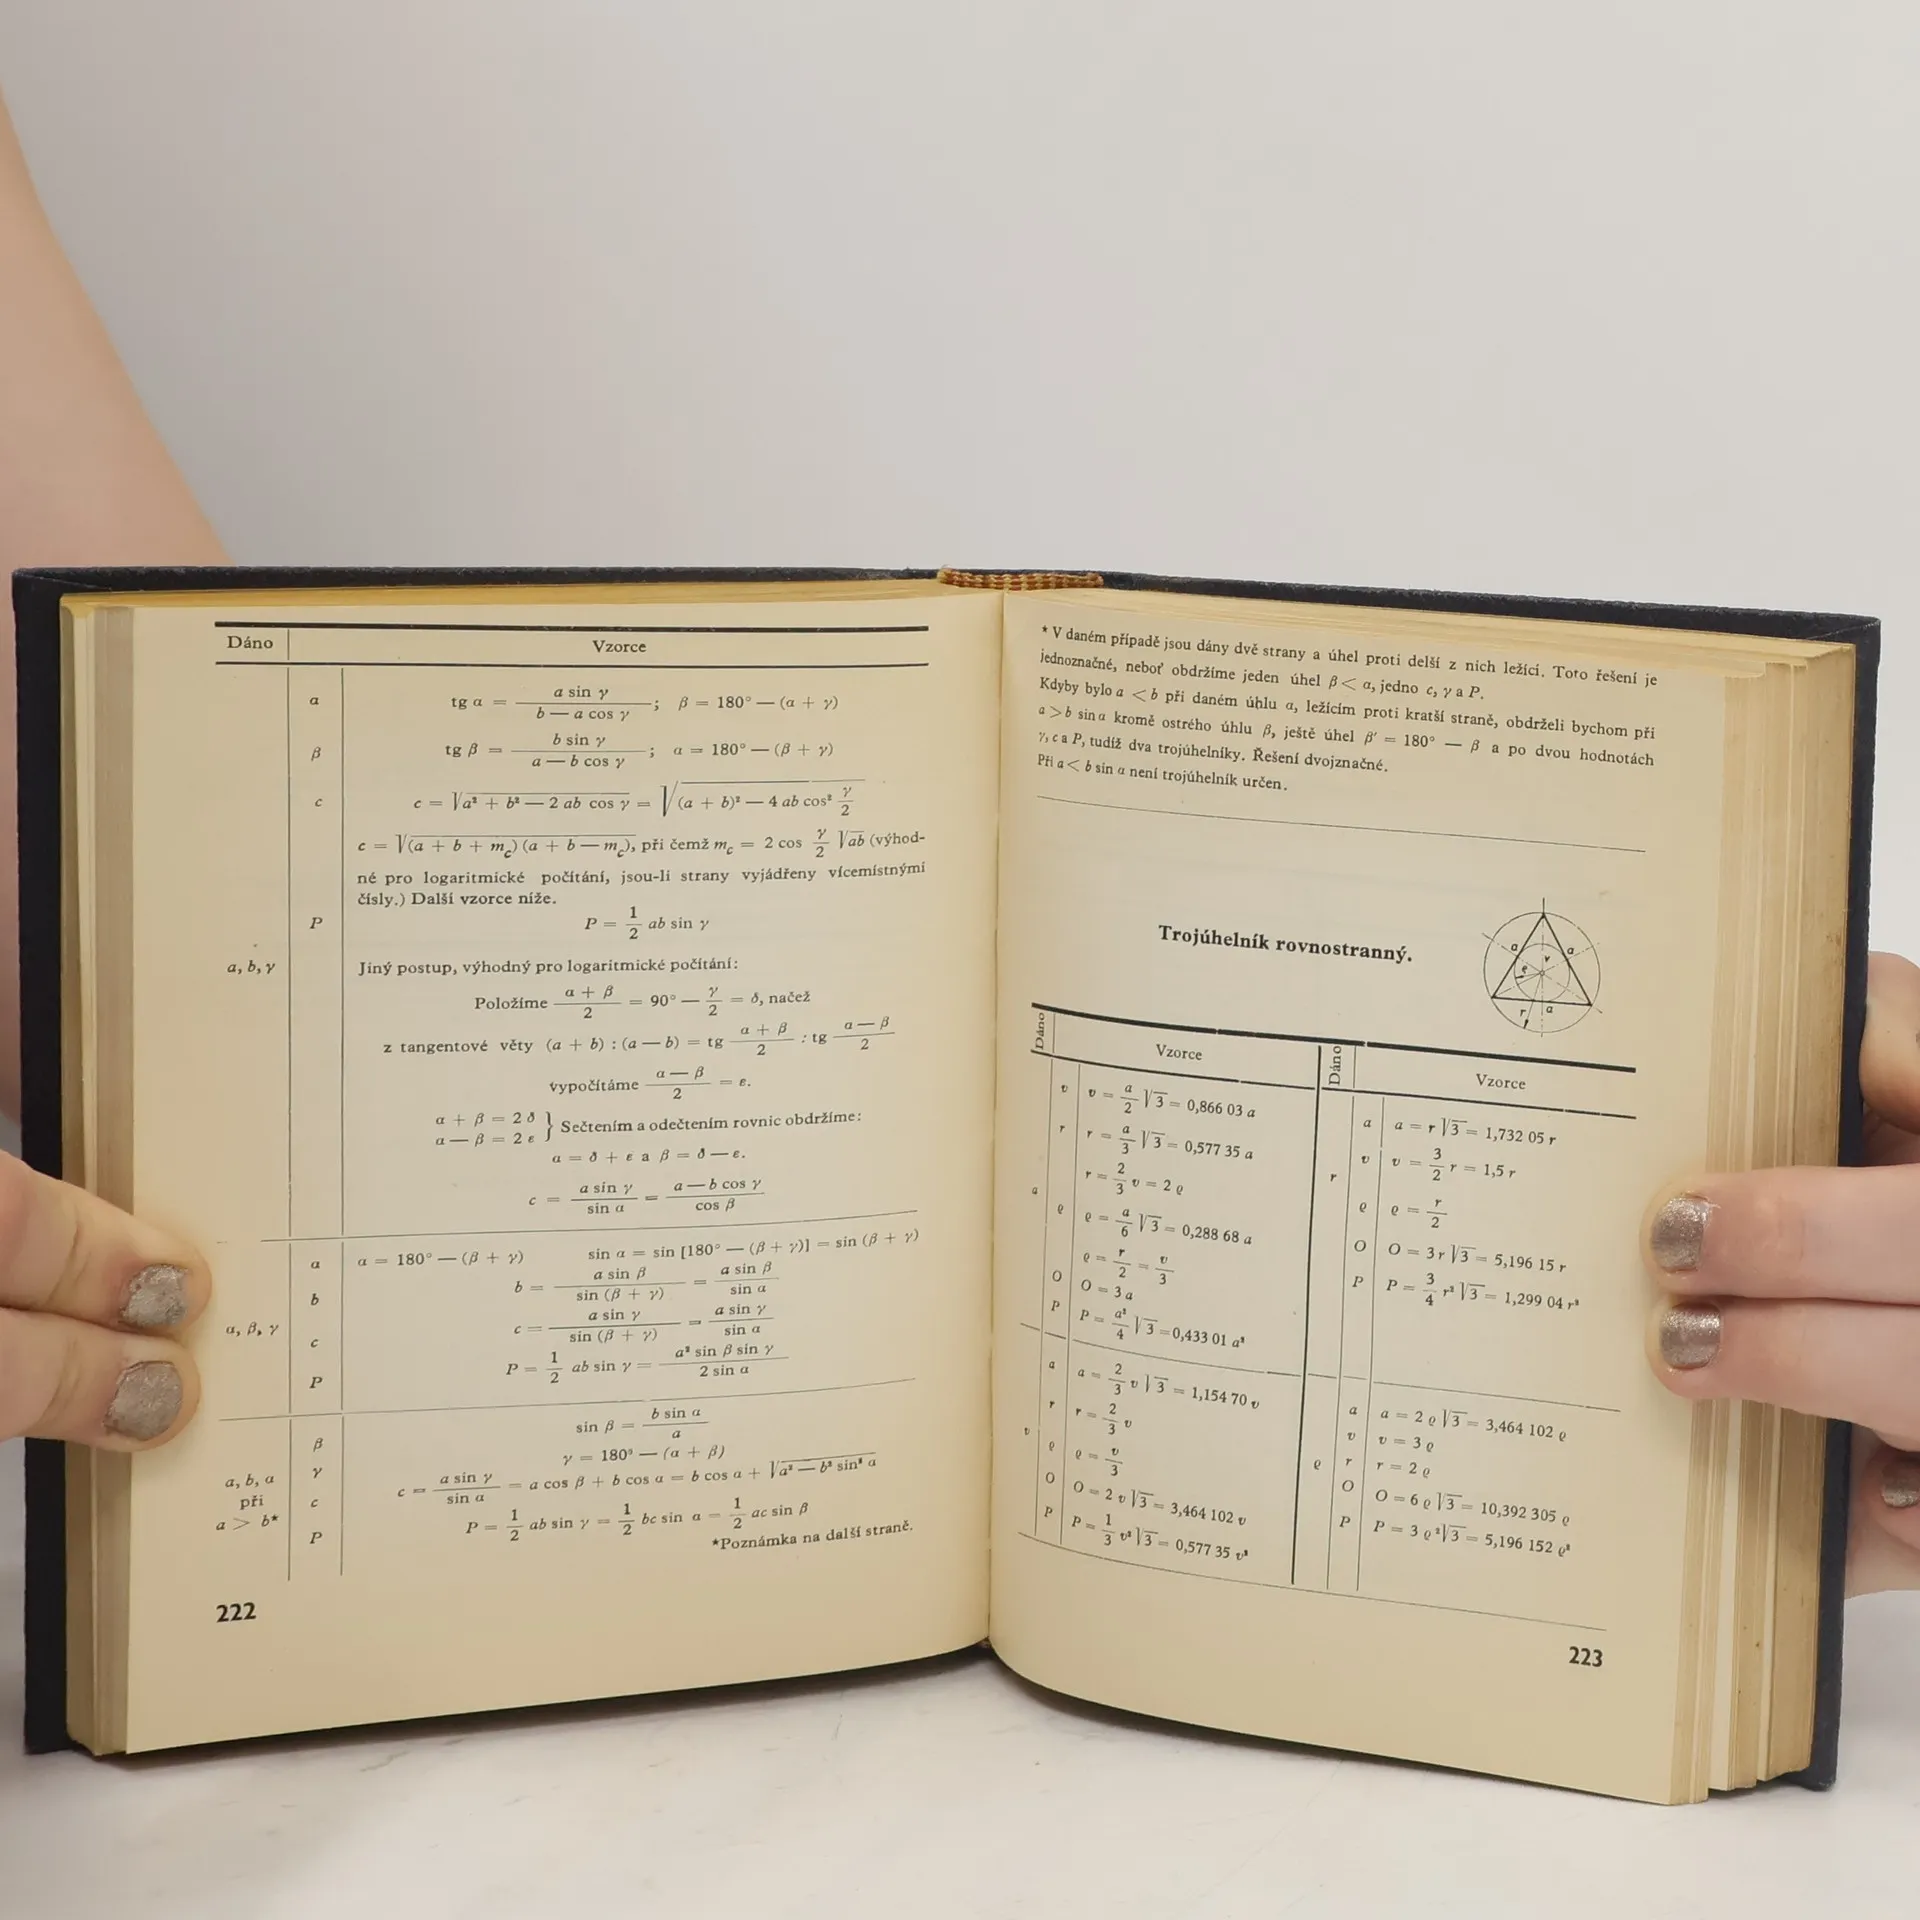 Dáno Vzorce
α tg α = a sin γ / b — a cos γ ; β = 180° — (α + γ)
β tg β = b sin γ / a — b cos γ ; α = 180° — (β + γ)
c c = √a² + b² — 2 ab cos γ = √(a + b)² — 4 ab cos² γ/2
c = √(a + b + m_c) (a + b — m_c), při čemž m_c = 2 cos γ/2 √ab (výhod-
né pro logaritmické počítání, jsou-li strany vyjádřeny vícemístnými
čísly.) Další vzorce níže.
P P = 1/2 ab sin γ
a, b, γ Jiný postup, výhodný pro logaritmické počítání:
Položíme α + β / 2 = 90° — γ/2 = δ, načež
z tangentové věty (a + b) : (a — b) = tg α + β / 2 : tg α — β / 2
vypočítáme α — β / 2 = ε.
α + β = 2 δ
α — β = 2 ε } Sečtením a odečtením rovnic obdržíme:
α = δ + ε a β = δ — ε.
c = a sin γ / sin α = a — b cos γ / cos β
α α = 180° — (β + γ) sin α = sin [180° — (β + γ)] = sin (β + γ)
b b = a sin β / sin (β + γ) = a sin β / sin α
a, β, γ c c = a sin γ / sin (β + γ) = a sin γ / sin α
P P = 1/2 ab sin γ = a² sin β sin γ / 2 sin α
β sin β = b sin α / a
γ γ = 180° — (α + β)
a, b, α
při
a > b*
c c = a sin γ / sin α = a cos β + b cos α = b cos α + √a² — b² sin² α
P P = 1/2 ab sin γ = 1/2 bc sin α = 1/2 ac sin β
*Poznámka na další straně.
222
* V daném případě jsou dány dvě strany a úhel proti delší z nich ležící. Toto řešení je
jednoznačné, neboť obdržíme jeden úhel β < α, jedno c, γ a P.
Kdyby bylo a < b při daném úhlu α, ležícím proti kratší straně, obdrželi bychom při
a > b sin α kromě ostrého úhlu β, ještě úhel β′ = 180° — β a po dvou hodnotách
γ, c a P, tudíž dva trojúhelníky. Řešení dvojznačné.
Při a < b sin α není trojúhelník určen.
Trojúhelník rovnostranný.
a a v ϱ r a
Dáno Vzorce
v v = a/2 √3 = 0,866 03 a
r r = a/3 √3 = 0,577 35 a
r = 2/3 v = 2 ϱ
a
ϱ ϱ = a/6 √3 = 0,288 68 a
ϱ = r/2 = v/3
O O = 3 a
P P = a²/4 √3 = 0,433 01 a²
a a = 2/3 v √3 = 1,154 70 v
r r = 2/3 v
v
ϱ ϱ = v/3
O O = 2 v √3 = 3,464 102 v
P P = 1/3 v² √3 = 0,577 35 v²
Dáno Vzorce
a a = r √3 = 1,732 05 r
v v = 3/2 r = 1,5 r
r
ϱ ϱ = r/2
O O = 3 r √3 = 5,196 15 r
P P = 3/4 r² √3 = 1,299 04 r²
a a = 2 ϱ √3 = 3,464 102 ϱ
v v = 3 ϱ
ϱ r r = 2 ϱ
O O = 6 ϱ √3 = 10,392 305 ϱ
P P = 3 ϱ² √3 = 5,196 152 ϱ²
223